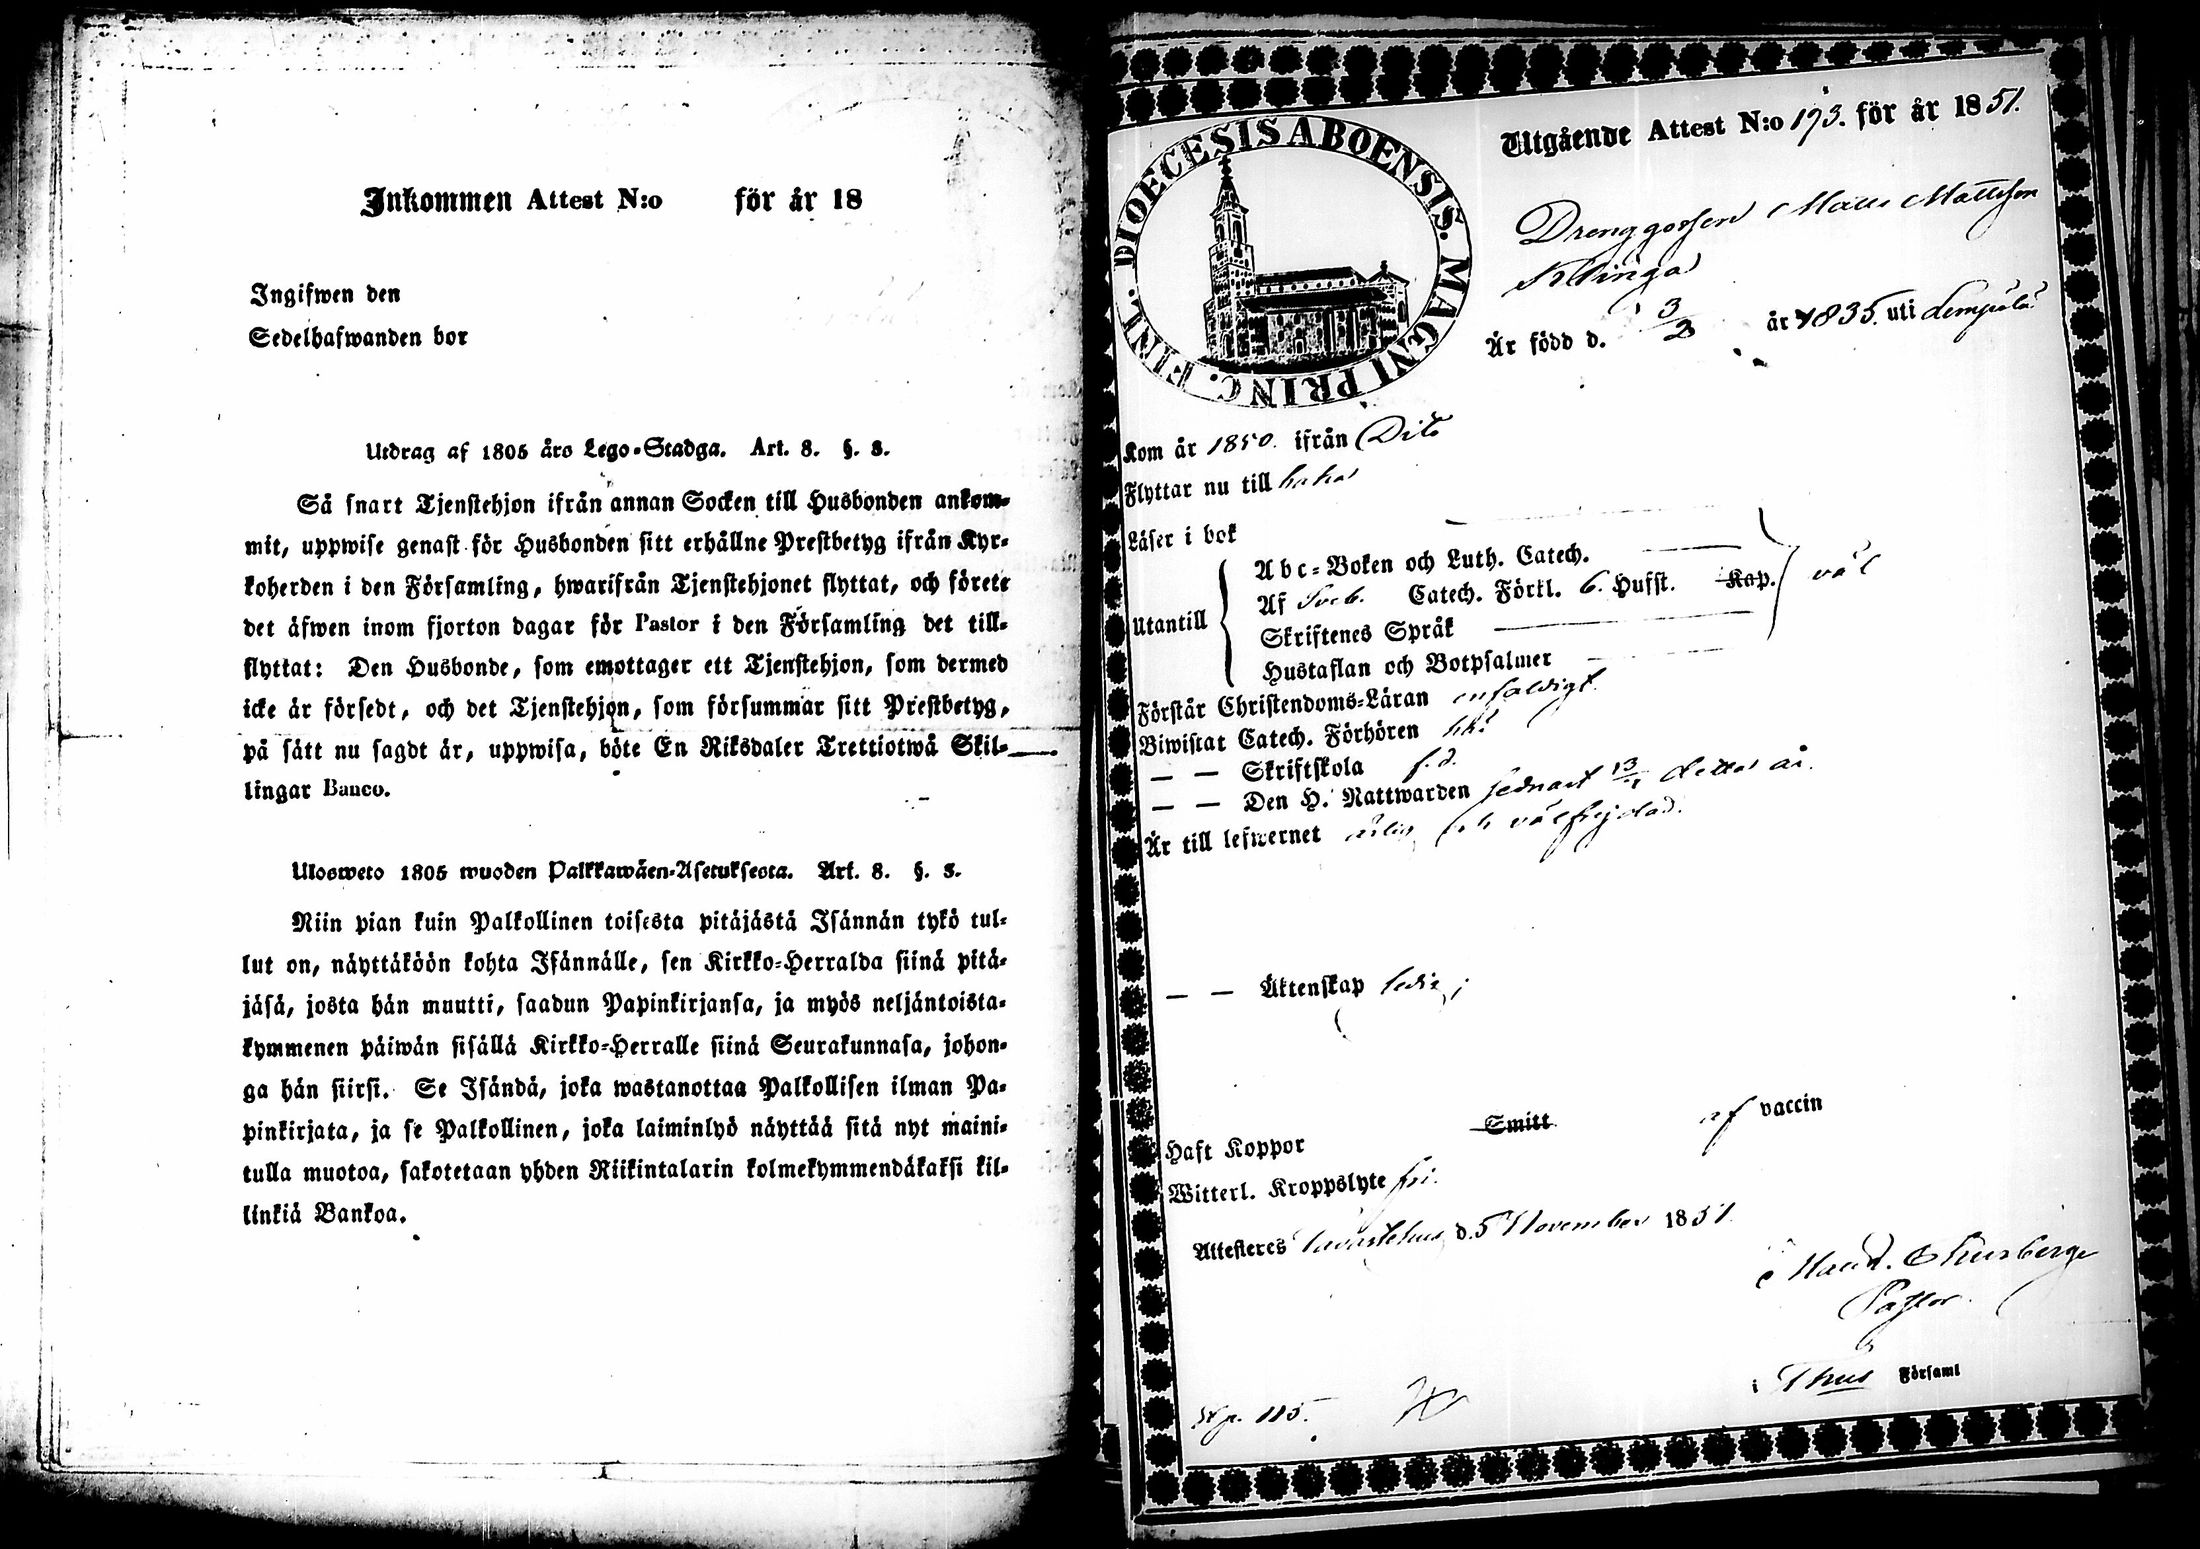 Inkommen Attest N:o för år 18
Ingifwen den
Sedelhafwanden bor
Utdrag af 1805 års Lego-Stadga. Art. 8. §. 3.
Så snart Tjenstehjon ifrån annan Socken till Husbonden ankom-
mit, uppwise genast för Husbonden sitt erhållne Prestbetyg ifrån Kyr-
koherden i den Församling, hwarifrån Tjenstehjonet flyttat, och förete
det äfwen inom fjorton dagar för Pastor i den Församling det till-
flyttat: Den Husbonde, som emottager ett Tjenstehjon, som dermed
icke är försedt, och det Tjenstehjon, som försummar sitt Prestbetyg,
på sätt nu sagdt är, uppwisa, böte En Riksdaler Trettiotwå Skil-
lingar Banco.
Ulosweto 1805 wuoden Palkkawäen-Asetuksesta. Art. 8. §. 3.
Niin pian kuin Palkollinen toisesta pitäjästä Isännän tykö tul-
lut on, näyttäköön kohta Isännälle, sen Kirkko-Herralda siinä pitä-
jäsä, josta hän muutti, saadun Papinkirjansa, ja myös neljäntoista-
kymmenen päiwän sisällä Kirkko-Herralle siinä Seurakunnasa, johon-
ga hän siirsi. Se Isändä, joka wastanottaa Palkollisen ilman Pa-
pinkirjata, ja se Palkollinen, joka laiminlyö näyttää sitä nyt maini-
tulla muotoa, sakotetaan yhden Riikintalarin kolmekymmendäkaksi kil-
linkiä Bankoa.
DIOECESIS ABOENSIS. MAGNI PRINC. FINL.
Utgående Attest N:o 193. för år 1851.
Drenggossen Matts Mattsson
Klinga
Är född d. 3/3 år 1835. uti Lempälä
Kom år 1850. ifrån Dito
Flyttar nu till
Läser i bok
Abc-Boken och Luth. Catech.
Utantill Af Sveb. Catech. Förkl. 6. Hufst. Kap. väl
Skriftenes Språk
Hustaflan och Botpsalmer
Förstår Christendoms-Läran enfaldigt.
Biwistat Catech. Förhören
— — Skriftskola f.d.
— — Den H. Nattwarden sednast detta år.
Är till lefwernet ärlig och välfrejdad.
— — Äktenskap ledig;
Haft Koppor Smitt af vaccin
Witterl. Kroppslyte fri.
Attesteres Tavastehus d. 5 November 1851.
Pastor.
i Thus Församl
p. 115.